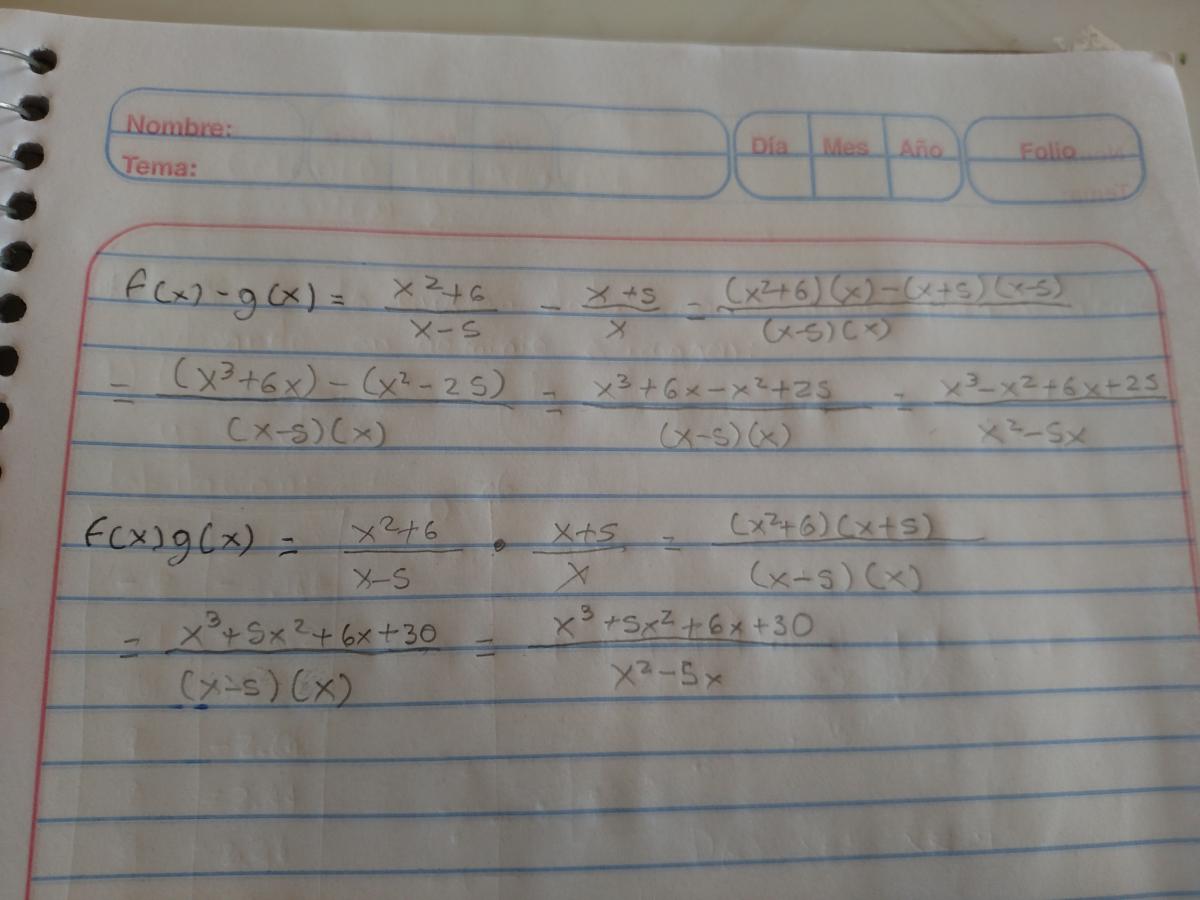 Nombre:
Tema:
Día Mes Año
Folio
f(x)-g(x) = \frac{x^2+6}{x-5} - \frac{x+5}{x} = \frac{(x^2+6)(x)-(x+5)(x-5)}{(x-5)(x)}
= \frac{(x^3+6x)-(x^2-25)}{(x-5)(x)} = \frac{x^3+6x-x^2+25}{(x-5)(x)} = \frac{x^3-x^2+6x+25}{x^2-5x}
f(x)g(x) = \frac{x^2+6}{x-5} \cdot \frac{x+5}{x} = \frac{(x^2+6)(x+5)}{(x-5)(x)}
= \frac{x^3+5x^2+6x+30}{(x-5)(x)} = \frac{x^3+5x^2+6x+30}{x^2-5x}